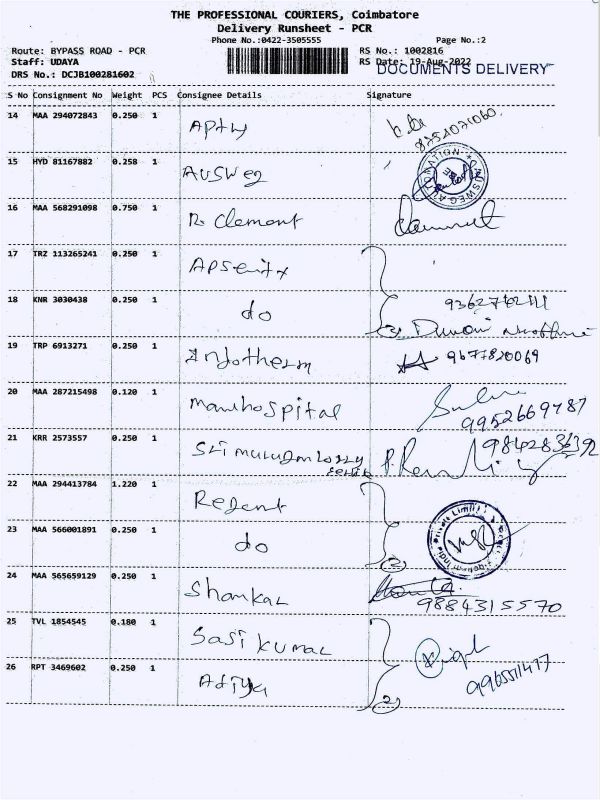 THE PROFESSIONAL COURIERS, Coimbatore
Delivery Runsheet - PCR
Phone No.:0422-3505555 Page No.:2
Route: BYPASS ROAD - PCR RS No.: 1002816
Staff: UDAYA RS Date: 19-Aug-2022
DOCUMENTS DELIVERY
DRS No.: DCJB100281602
S No Consignment No Weight PCS Consignee Details Signature
14 MAA 294072843 0.250 1
8751071060
15 HYD 81167882 0.258 1 Ausweg
AUSWEG AUTOMATION
16 MAA 568291098 0.750 1 R. Clement
17 TRZ 113265241 0.250 1
18 KNR 3030438 0.250 1 do
19 TRP 6913271 0.250 1 Infotherm 9677820069
20 MAA 287215498 0.120 1 9952669787
21 KRR 2573557 0.250 1
22 MAA 294413784 1.220 1 Regent
23 MAA 566001891 0.250 1 do
2
24 MAA 565659129 0.250 1 Shankar
9884315570
25 TVL 1854545 0.180 1 Sasi Kumar
26 RPT 3469602 0.250 1 Aditya
2